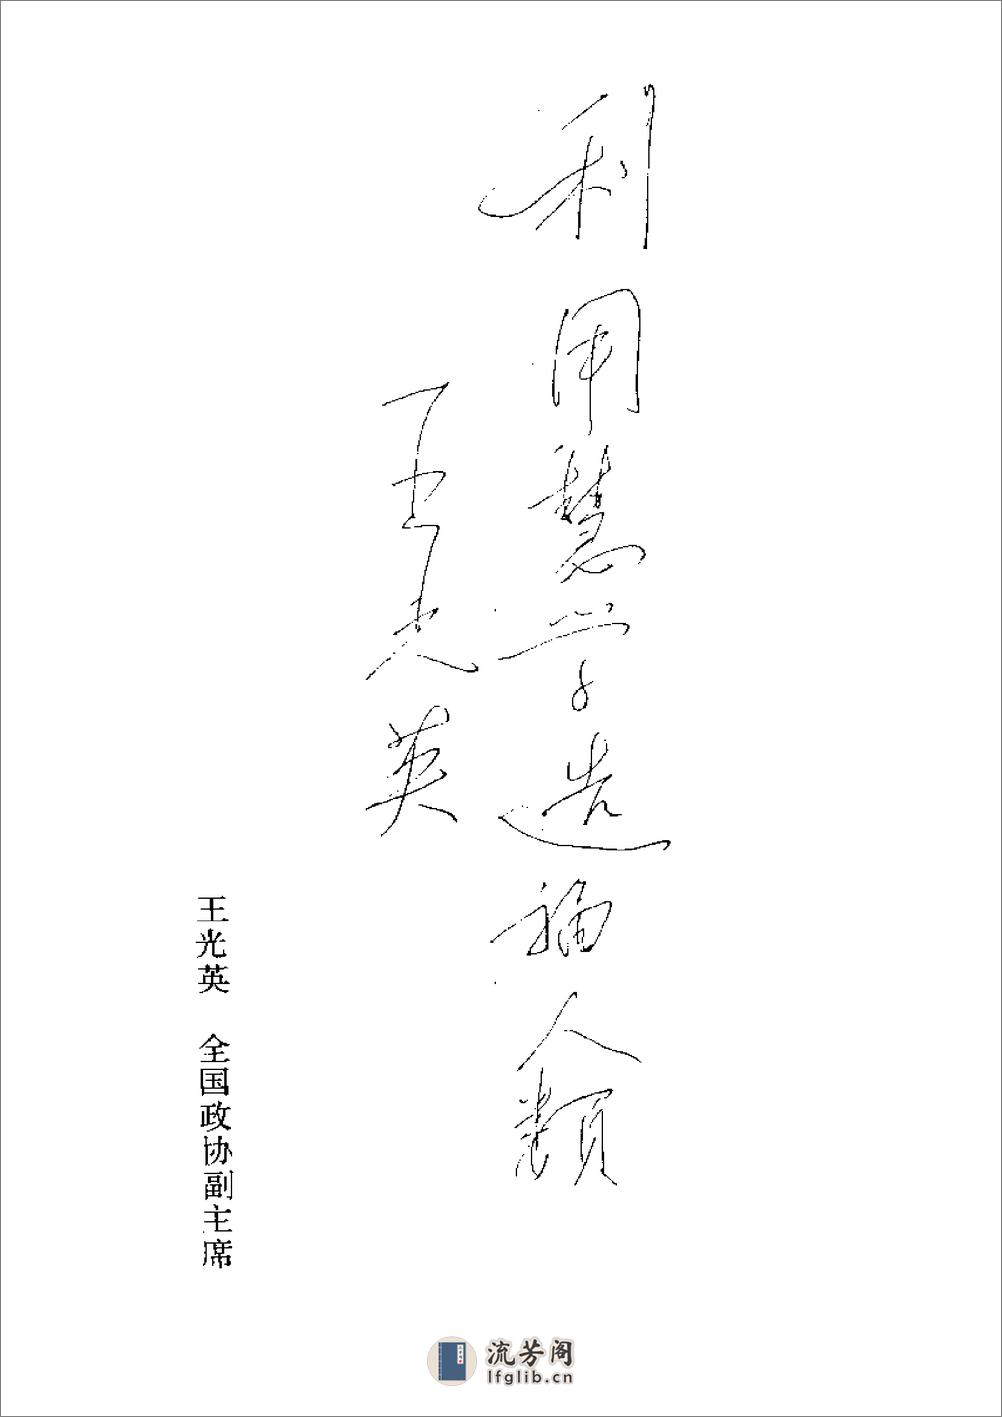 利用慧学造福人類
王光英
王光英 全国政协副主席
流芳阁
lfglib.cn